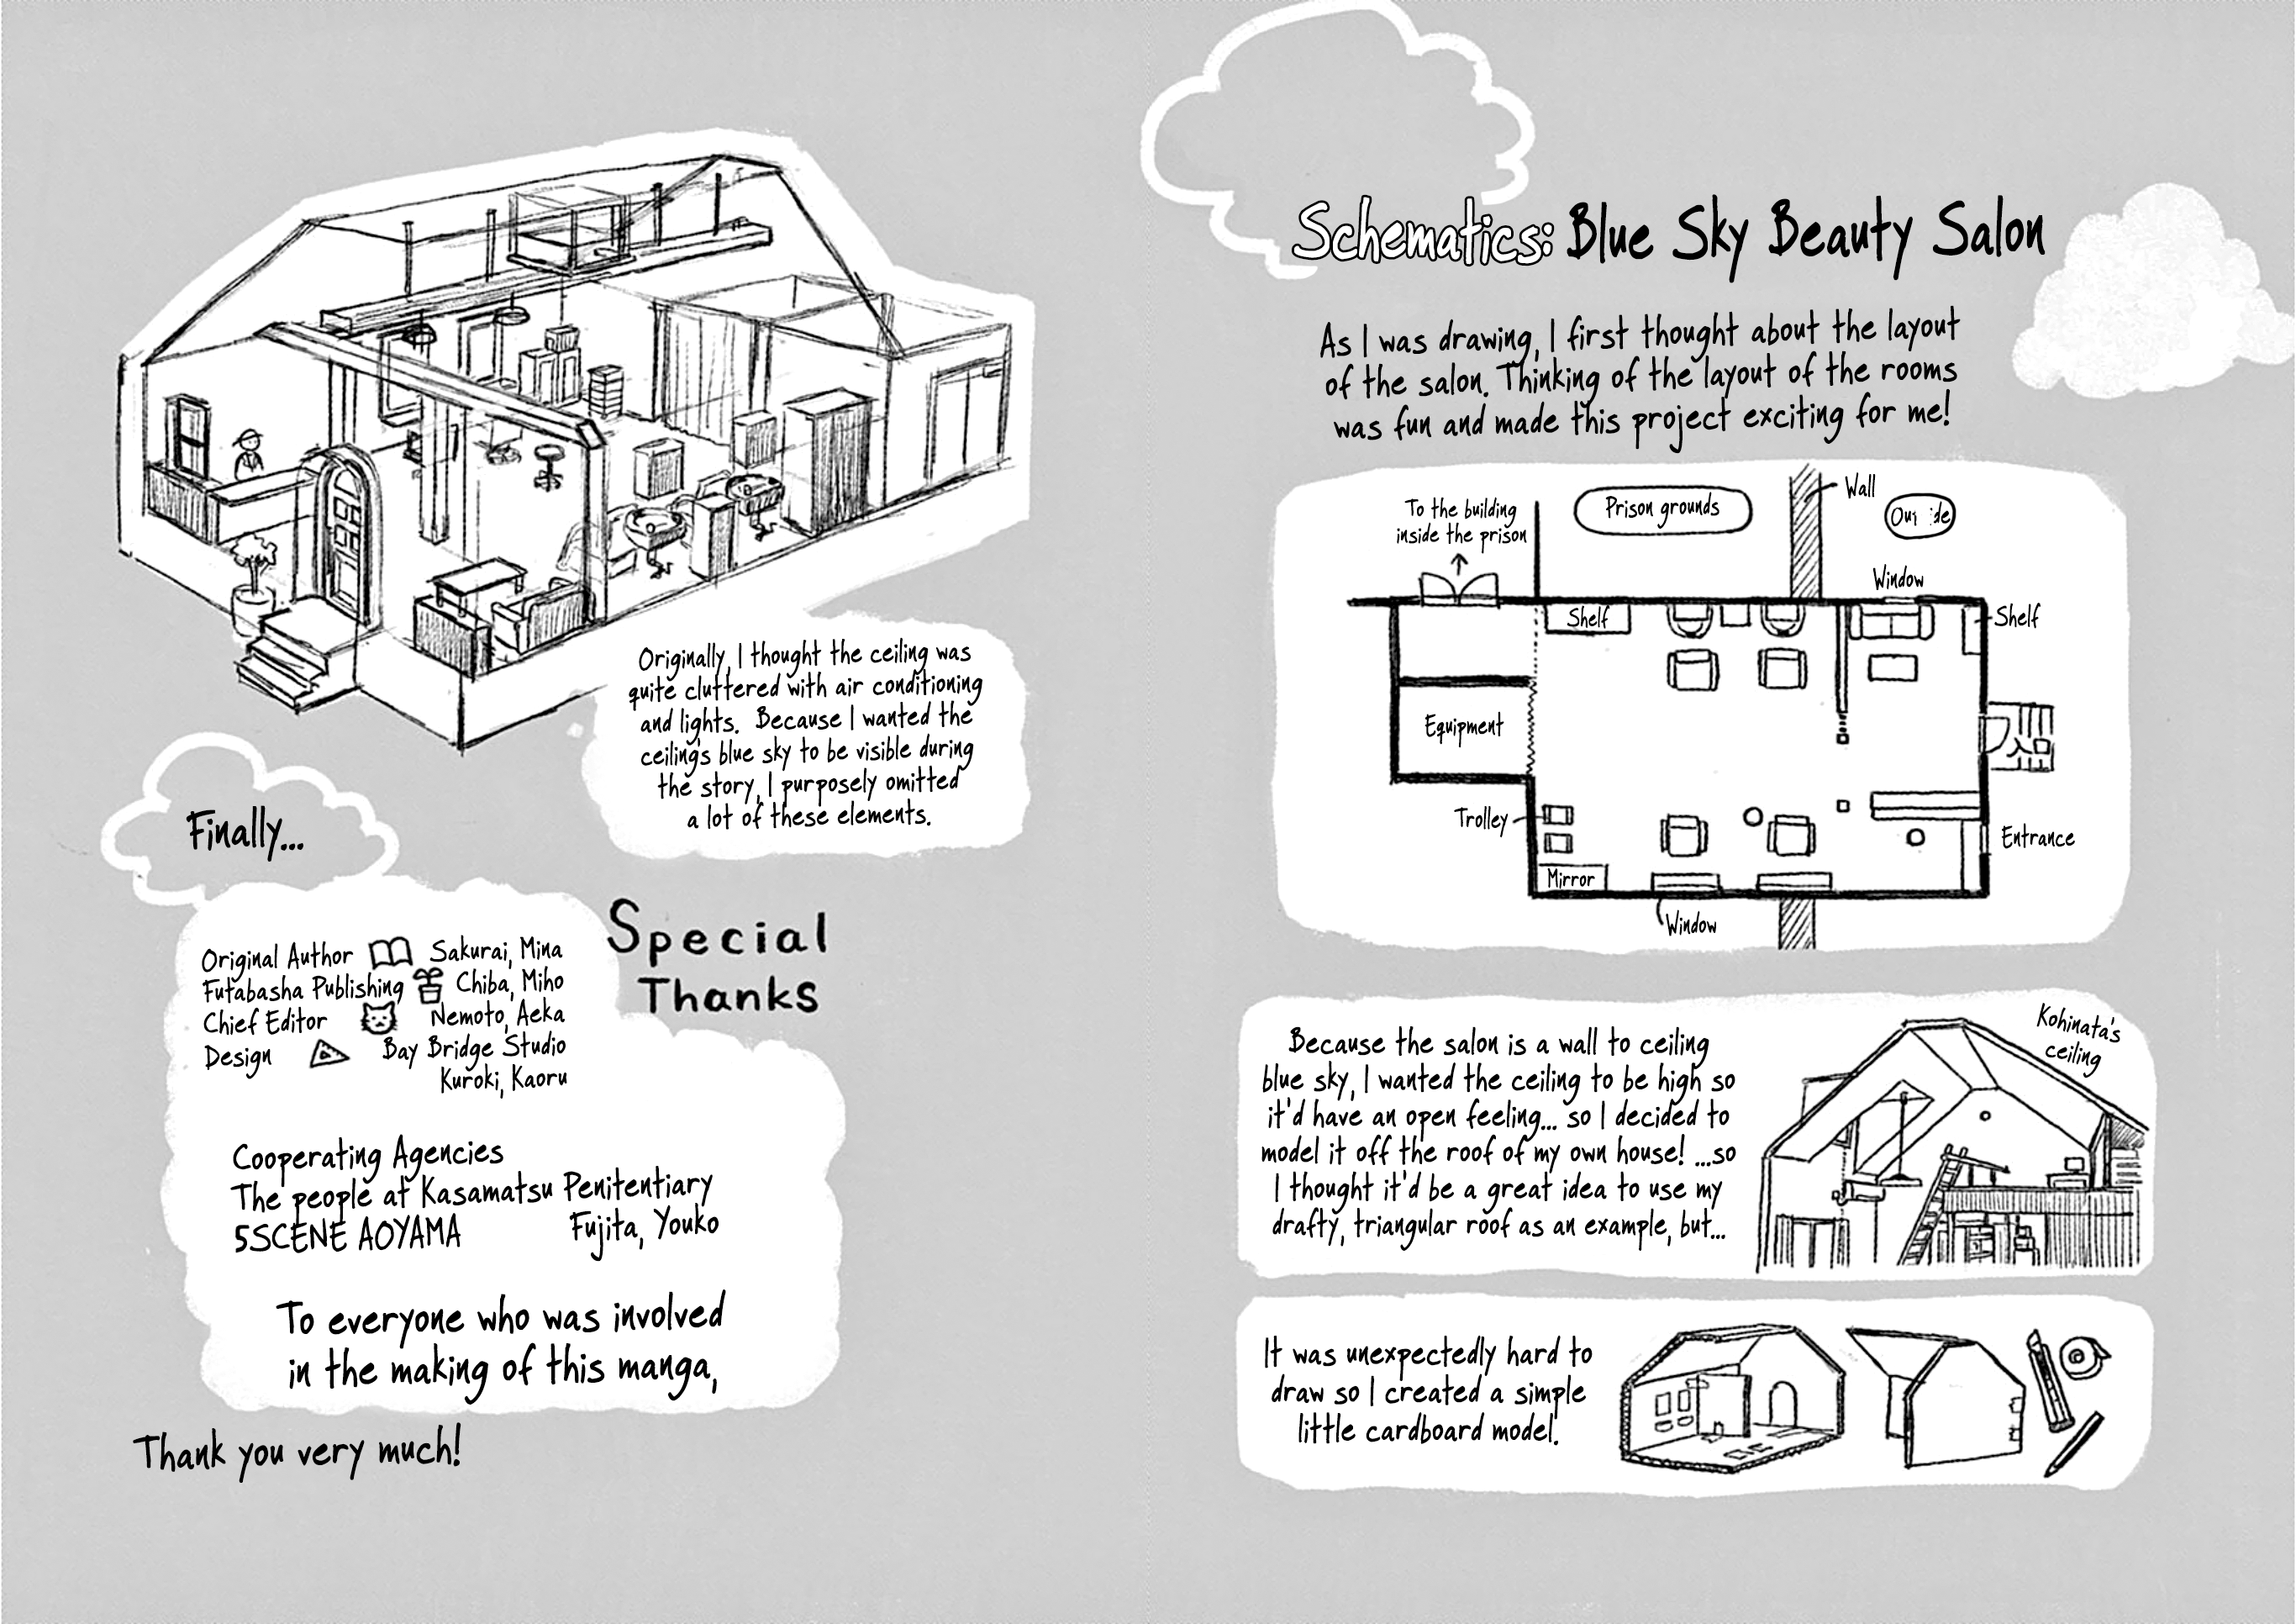 Schematics: Blue Sky Beauty Salon
As I was drawing, I first thought about the layout
of the salon. Thinking of the layout of the rooms
was fun and made this project exciting for me!
To the building
inside the prison
Prison grounds
Wall
Window
Shelf
Shelf
Equipment
Trolley
Entrance
Mirror
Window
Because the salon is a wall to ceiling
blue sky, I wanted the ceiling to be high so
it'd have an open feeling... so I decided to
model it off the roof of my own house! ...so
I thought it'd be a great idea to use my
drafty, triangular roof as an example, but...
Kohinata's
ceiling
It was unexpectedly hard to
draw so I created a simple
little cardboard model.
Originally, I thought the ceiling was
quite cluttered with air conditioning
and lights. Because I wanted the
ceiling's blue sky to be visible during
the story, I purposely omitted
a lot of these elements.
Finally...
Special
Thanks
Original Author Sakurai, Mina
Futabasha Publishing Chiba, Miho
Chief Editor Nemoto, Aeka
Design Bay Bridge Studio
Kuroki, Kaoru
Cooperating Agencies
The people at Kasamatsu Penitentiary
5SCENE AOYAMA Fujita, Youko
To everyone who was involved
in the making of this manga,
Thank you very much!